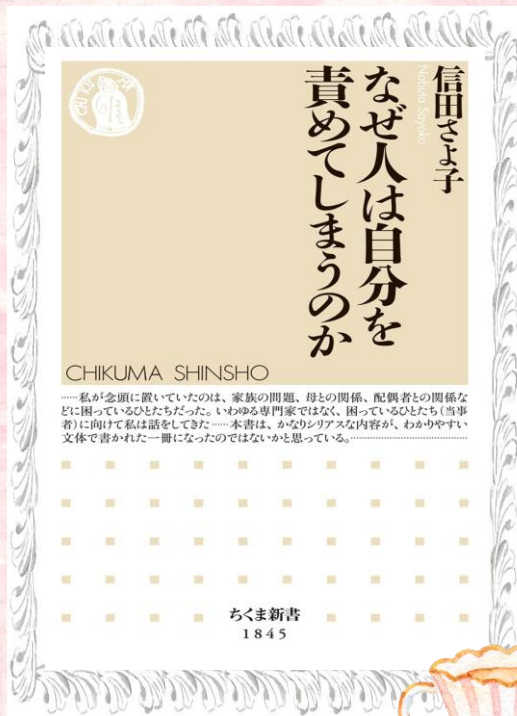 信田さよ子
Nobuta Sayoko
なぜ人は自分を
責めてしまうのか
CHIKUMA SHINSHO
……私が念頭に置いていたのは、家族の問題、母との関係、配偶者との関係な
どに困っているひとたちだった。いわゆる専門家ではなく、困っているひとたち(当事
者)に向けて私は話をしてきた……本書は、かなりシリアスな内容が、わかりやすい
文体で書かれた一冊になったのではないかと思っている。…………………………
ちくま新書
1845